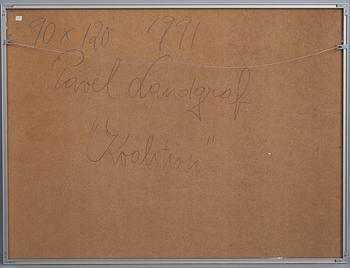 90 x 120 1991
Pavel Landgraf
"Koalition"